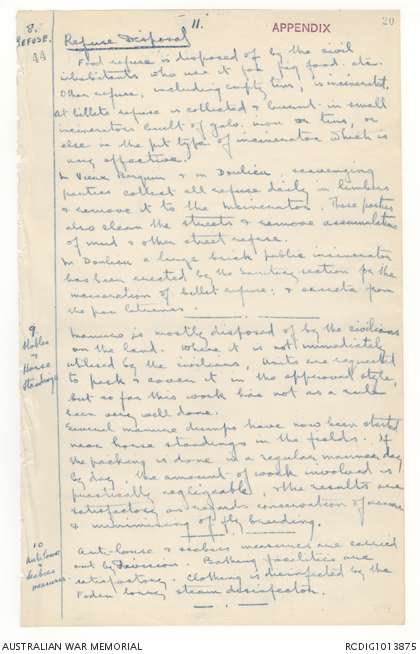 11.
APPENDIX
20
8.
REFUSE.
44
Refuse Disposal
Food refuse is disposed of by the civil
inhabitants who use it for pig food. etc.
Other refuse, including empty tins, is incinerated.
At billets refuse is collected & burnt in small
incinerators built of galv. iron or tins, or
else in the pit type of incinerator which is
very effective.
In Vieux Berquin & in Doulieu, scavenging
parties collect all refuse daily in limbers
& remove it to the incinerator. These parties
also clean the streets & remove accumulations
of mud & other street refuse.
In Doulieu a large brick public incinerator
has been erected by the Sanitary section for the
incineration of billet refuse: & excreta from
the pan latrines.
9
Stables
&
Horse
Standings
Manure is mostly disposed of by the civilians
on the land. Where it is not immediately
utilised by the civilians, units are requested
to pack & cover it in the approved style,
but so far this work has not as a rule
been very well done.
Several manure dumps have now been started
near horse standings in the fields. If
the packing is done in a regular manner day
by day, the amount of work involved is
practically negligeable, & the results are
satisfactory as regards conservation of manure
& minimising of fly breeding.
10
Anti louse
&
Scabies
measures
Anti-louse & scabies measures are carried
out by Division. Bathing facilities are
satisfactory. Clothing is disinfected by the
Foden lorry steam disinfector.
AUSTRALIAN WAR MEMORIAL
RCDIG1013875